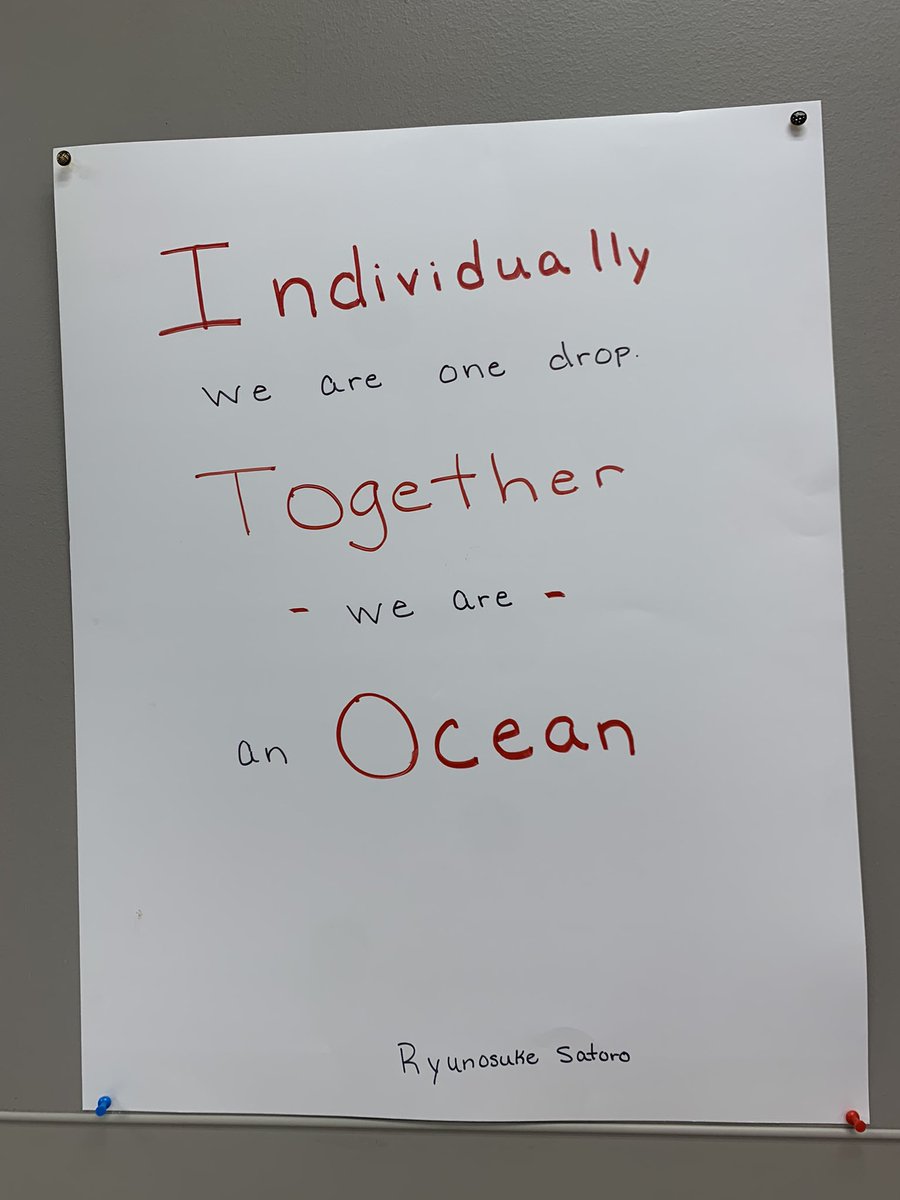 Individually
we are one drop.
Together
- we are -
an Ocean
Ryunosuke Satoro